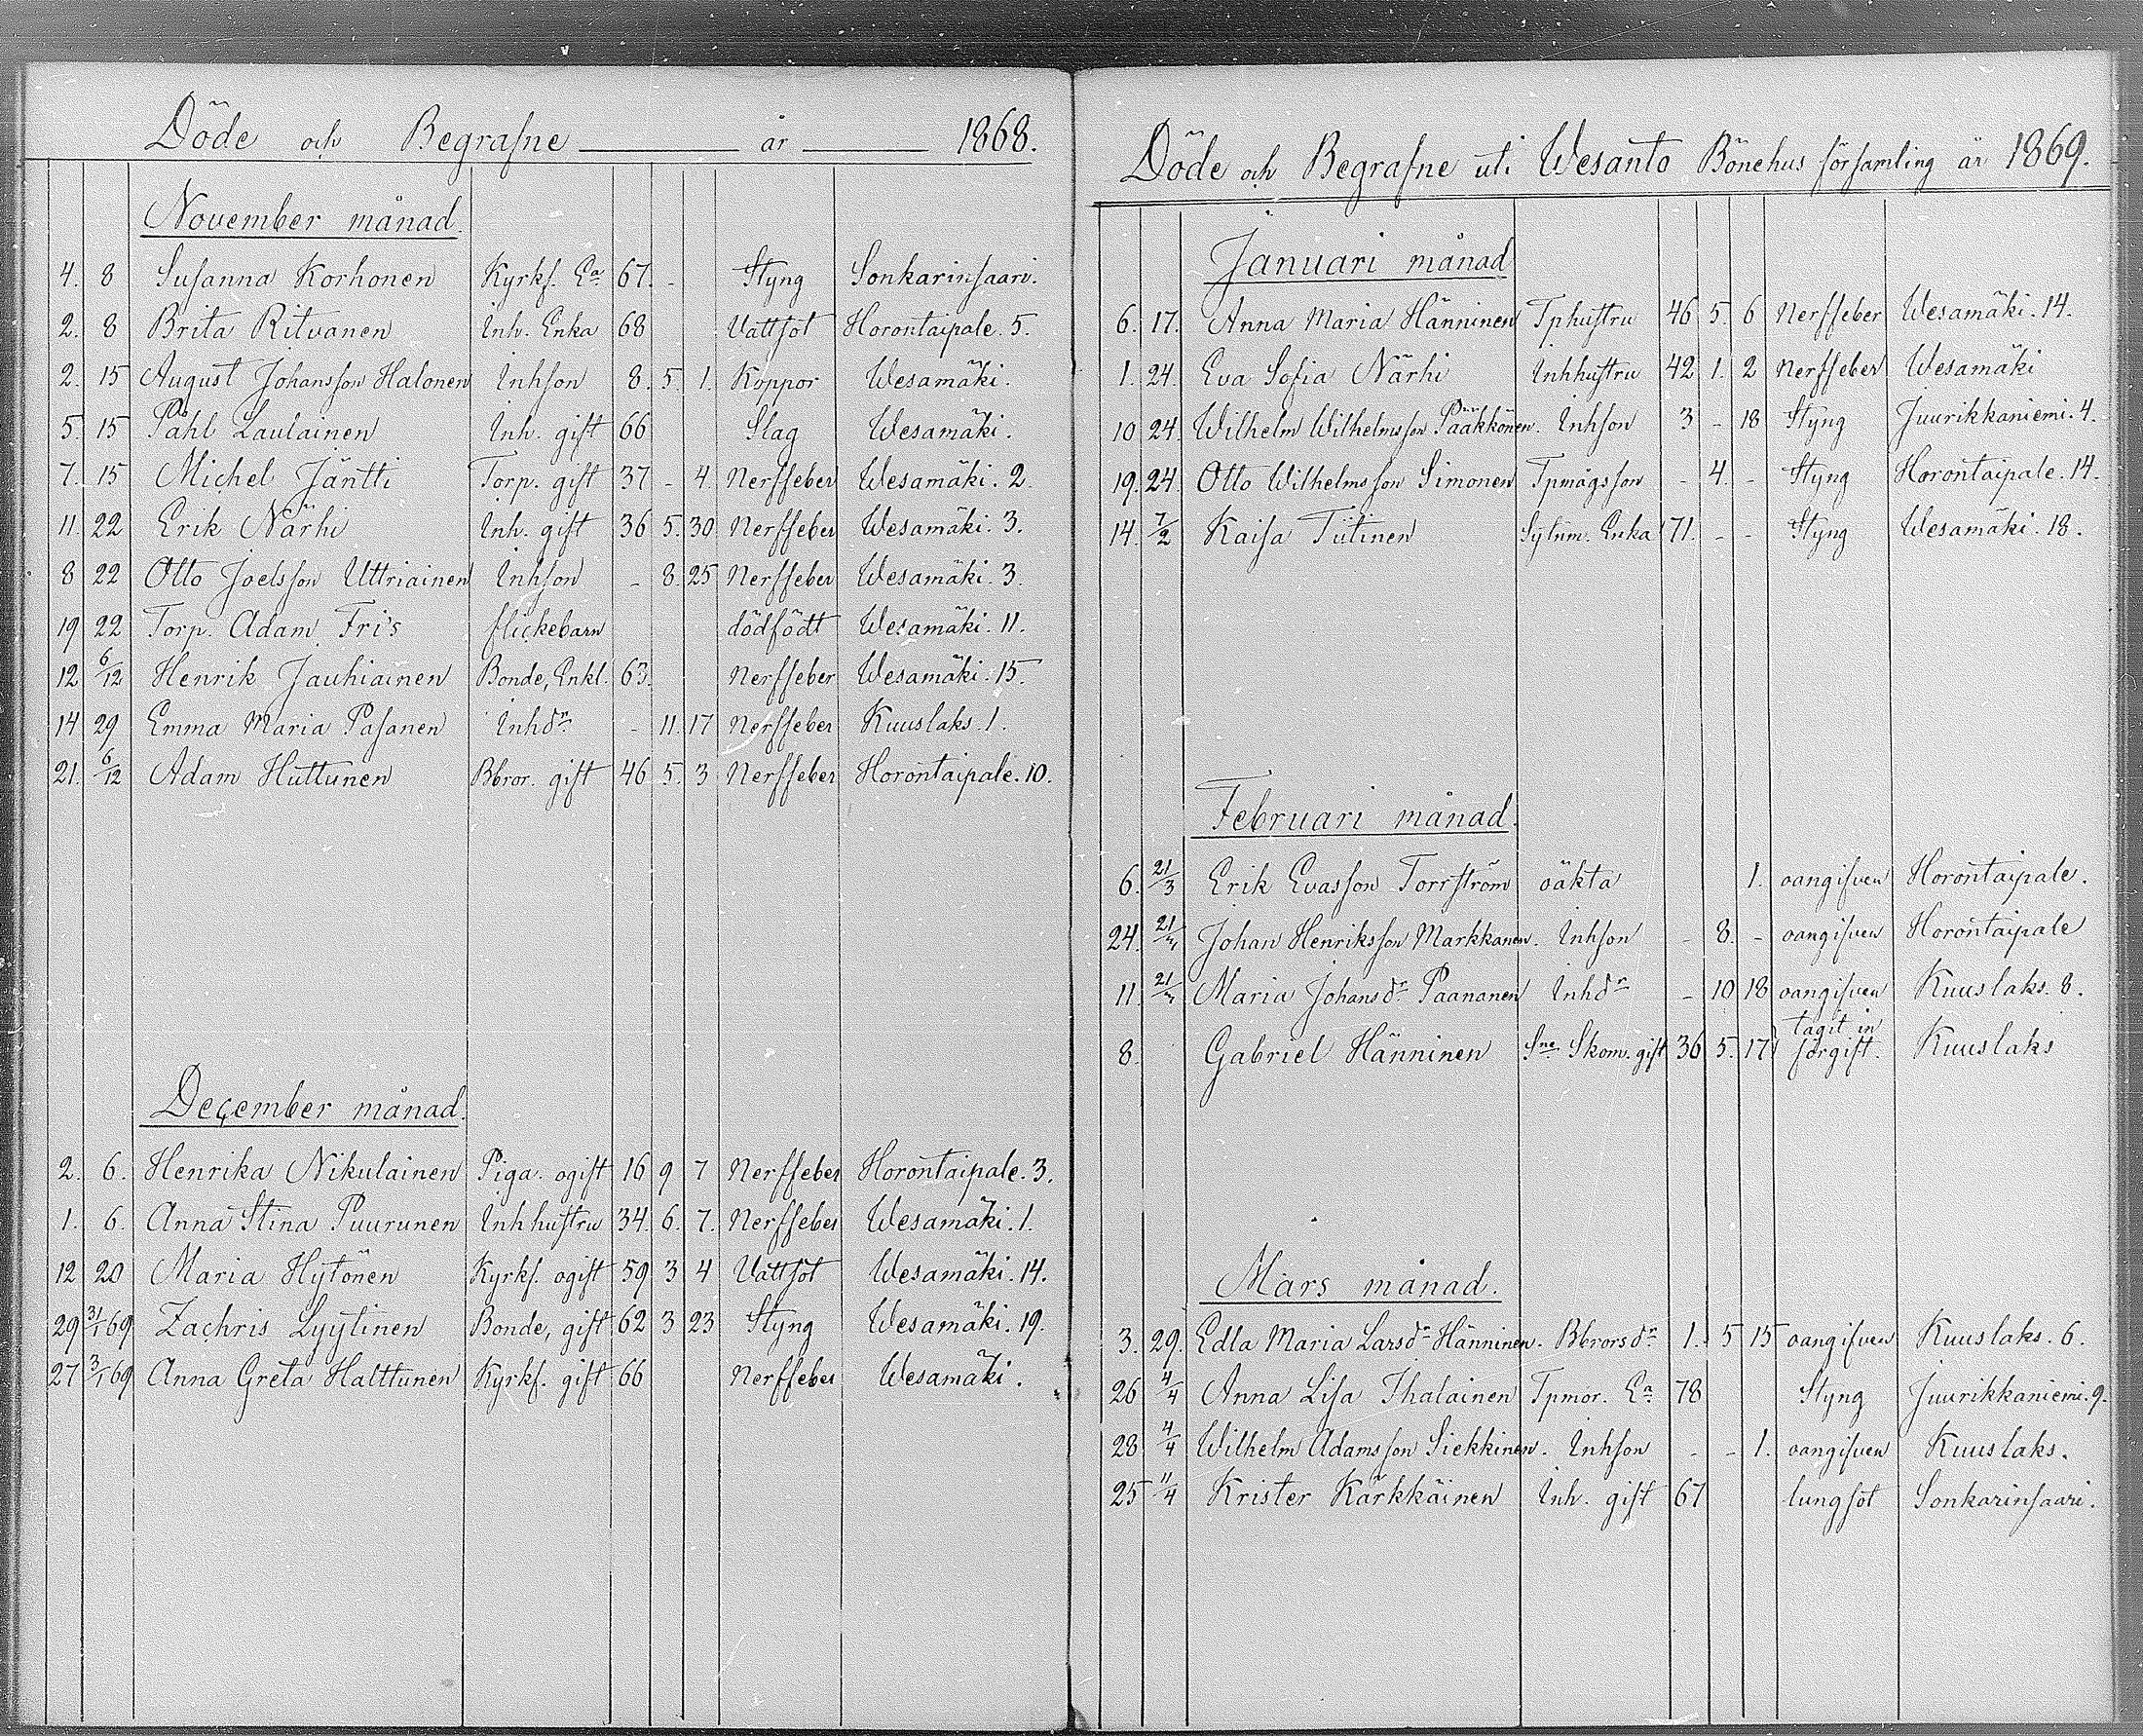 Döde och Begrafne år 1868.
November månad.
4. 8 Susanna Korhonen Kyrkf. Ea 67. - Styng Sonkarinsaari.
2. 8 Brita Ritvanen Inh. Enka 68 Vattsot Horontaipale. 5.
2. 15 August Johansson Halonen Inhson 8. 5. 1. Koppor Wesamäki.
5. 15 Påhl Laulainen Inh. gift 66 Slag Wesamäki.
7. 15 Michel Jäntti Torp. gift 37 - 4. Nerffeber Wesamäki. 2.
11. 22 Erik Närhi Inh. gift 36 5. 30 Nerffeber Wesamäki. 3.
8 22 Otto Joelsson Uttriainen Inhson - 8. 25 Nerffeber Wesamäki. 3.
19 22 Torp. Adam Fri's flickebarn dödfödt Wesamäki. 11.
12 6/12 Henrik Jauhiainen Bonde, Enkl. 63. Nerffeber Wesamäki. 15.
14 29 Emma Maria Pasanen Inhdr - 11. 17 Nerffeber Kuuslaks. 1.
21. 6/12 Adam Huttunen Bbror. gift 46 5. 3 Nerffeber Horontaipale. 10.
December månad.
2. 6. Henrika Nikulainen Piga. ogift 16 9 7 Nerffeber Horontaipale. 3.
1. 6. Anna Stina Puurunen Inhhustru 34. 6. 7. Nerffeber Wesamäki. 1.
12 20 Maria Hytönen Kyrkf. ogift 59 3 4 Vattsot Wesamäki. 14.
29 31/1 69 Zachris Lyytinen Bonde, gift 62 3 23 Styng Wesamäki. 19.
27 3/1 69 Anna Greta Halttunen Kyrkf. gift 66 Nerffeber Wesamäki.
Döde och Begrafne uti Wesanto Bönehus församling år 1869.
Januari månad
6. 17. Anna Maria Hänninen Tphustru 46 5. 6 Nerffeber Wesamäki. 14.
1. 24. Eva Sofia Närhi Inhhustru 42 1. 2 Nerffeber Wesamäki
10 24. Wilhelm Wilhelmsson Pääkkönen. Inhson 3 - 18 Styng Juurikkaniemi. 4.
19. 24. Otto Wilhelmsson Simonen Tpmågsson - 4. - Styng Horontaipale. 14.
14. 7/2 Kaisa Tiitinen Sytnm. Enka 71. - - Styng Wesamäki. 18.
Februari månad.
6. 21/3 Erik Evasson Torrström oäkta 1. oangifven Horontaipale.
24. 21/" Johan Henriksson Markkanen. Inhson - 8. - oangifven Horontaipale
11. 21/" Maria Johansdr Paananen Inhdr - 10 18 oangifven Kuuslaks. 8.
8. Gabriel Hänninen Sne Skom. gift 36 5. 17 tagit in förgift. Kuuslaks
Mars månad.
3. 29. Edla Maria Larsdr Hänninen. Bbrorsdr 1. 5 15 oangifven Kuuslaks. 6.
26 4/4 Anna Lisa Ihalainen Tpmor. Ea 78 Styng Juurikkaniemi. 9.
28 4/4 Wilhelm Adamsson Siekkinen. Inhson - - 1. oangifven Kuuslaks.
25 11/4 Krister Kärkkäinen Inh. gift 67 lungsot Sonkarinsaari.